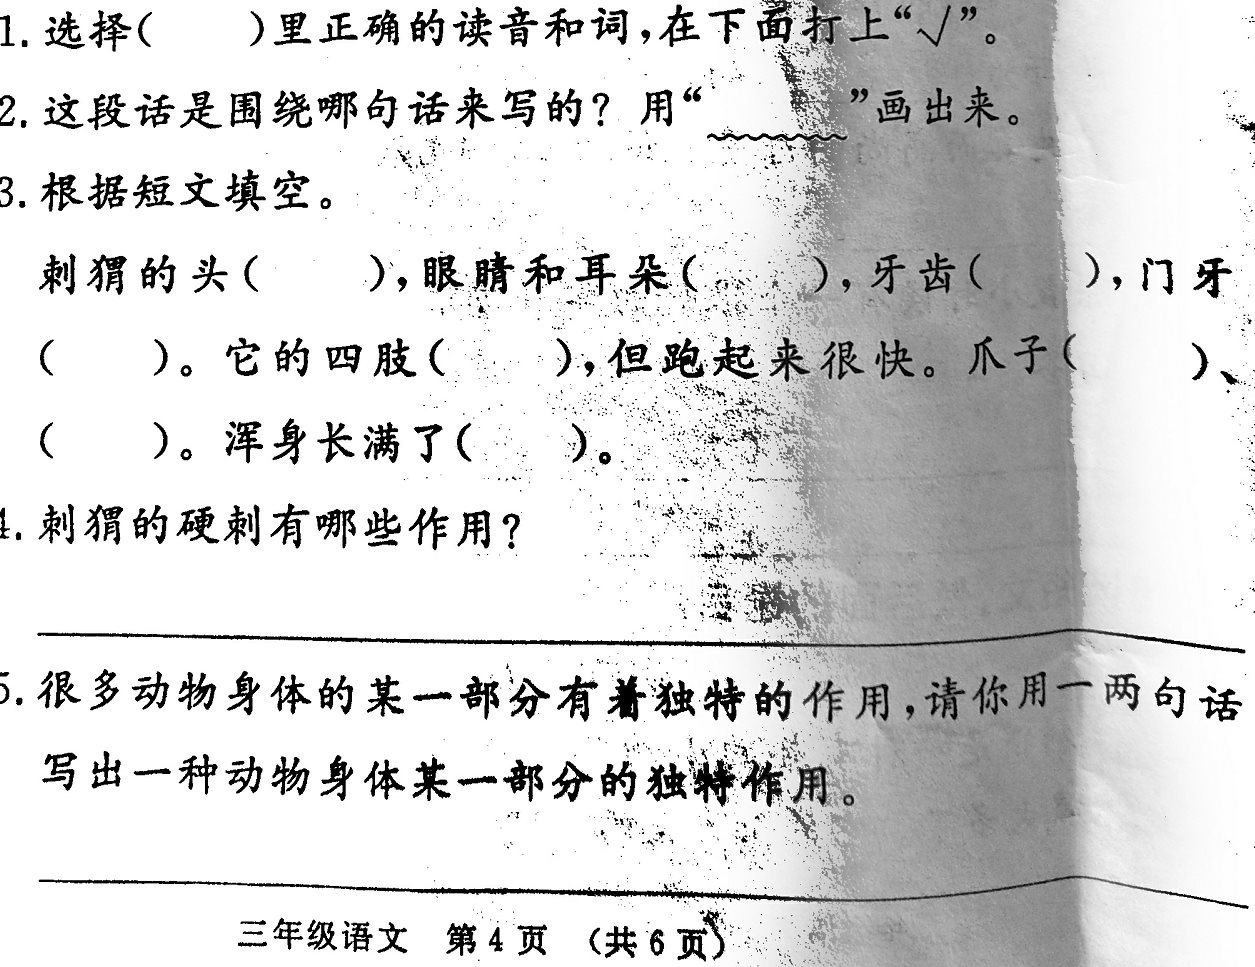 1. 选择(　　)里正确的读音和词,在下面打上“√”。
2. 这段话是围绕哪句话来写的? 用“　　”画出来。
3. 根据短文填空。
刺猬的头(　　),眼睛和耳朵(　　),牙齿(　　),门牙
(　　)。它的四肢(　　),但跑起来很快。爪子(　　)、
(　　)。浑身长满了(　　)。
4. 刺猬的硬刺有哪些作用?
5. 很多动物身体的某一部分有着独特的作用,请你用一两句话
写出一种动物身体某一部分的独特作用。
三年级语文 第 4 页 (共 6 页)